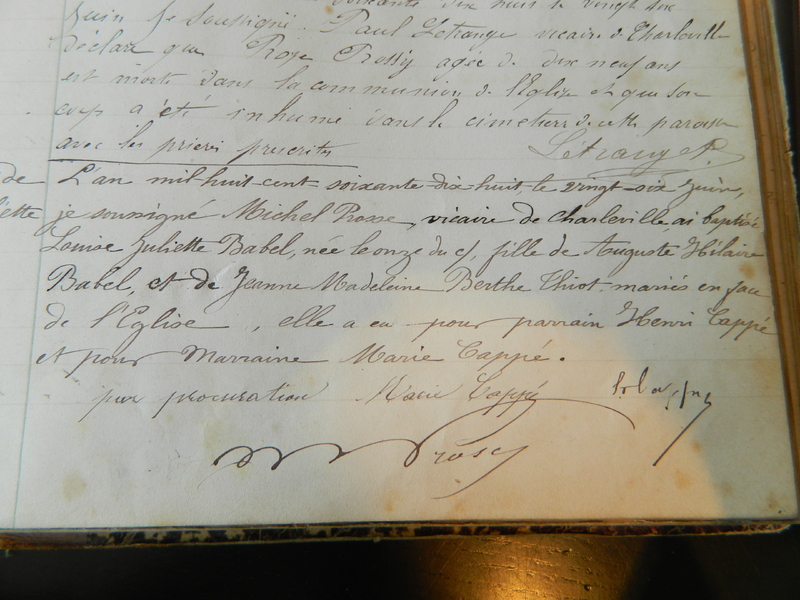 soixante dix huit le vingt six
Juin Je soussigné Paul Létrange vicaire de Charleville
déclare que Rose agée de dix neuf ans
est morte dans la communion de l'Eglise et que son
corps a été inhumé dans le cimetière de cette paroisse
avec les prières prescrites
Létrange P.
de L'an mil huit-cent-soixante-dix-huit le vingt-six Juin,
je soussigné Michel Prosse, vicaire de Charleville, ai baptisé
Louise Juliette Babel, née le onze du ct, fille de Auguste Hilaire
Babel, et de Jeanne Madeleine Berthe Thiot mariés en face
de l'Eglise, elle a eu pour parrain Henri Cappé
et pour marraine Marie Cappé.
par procuration Marie Cappé